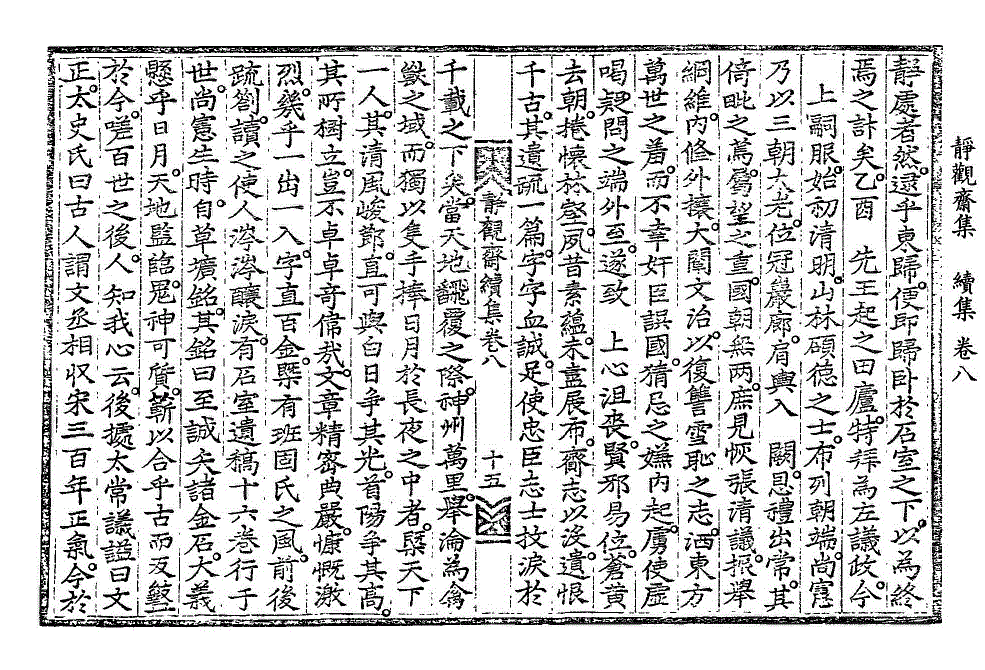 靜處者然。逮乎東歸。便卽歸卧於石室之下。以爲終
焉之計矣。乙酉 先王起之田廬。特拜爲左議政。今
上嗣服。始初淸明。山林碩德之士。布列朝端。尙憲
乃以三朝大老。位冠巖廊。肩輿入 闕。恩禮出常。其
倚毗之篤。屬望之重。國朝無兩。庶見恢張淸議。振擧
綱維。內修外攘。大闡文治。以復讐雪恥之志。洒東方
萬世之羞。而不幸奸臣誤國。猜忌之嫌內起。虜使虛
喝。疑問之端外至。遂致 上心沮喪。賢邪易位。蒼黃
去朝。捲懷林壑。夙昔素蘊。未盡展布。齎志以沒。遺恨
千古。其遺疏一篇。字字血誠。足使忠臣志士抆淚於
靜觀齋續集卷八
十五
千載之下矣。當天地飜覆之際。神州萬里。擧淪爲禽
獸之域。而獨以隻手捧日月於長夜之中者。槩天下
一人。其淸風峻節。直可與白日爭其光。首陽爭其高。
其所樹立。豈不卓卓奇偉哉。文章精密典嚴。慷慨激
烈。幾乎一出一入。字直百金。槩有班固氏之風。前後
疏箚。讀之使人涔涔釀淚。有石室遺稿十六卷行于
世。尙憲生時。自草壙銘。其銘曰至誠矢諸金石。大義
懸乎日月。天地監臨。鬼神可質。蘄以合乎古而反盭
於今。嗟百世之後。人知我心云。後據太常議謚曰文
正。太史氏曰古人謂文丞相收宋三百年正氣。今於
靜觀齋集 續集 卷八